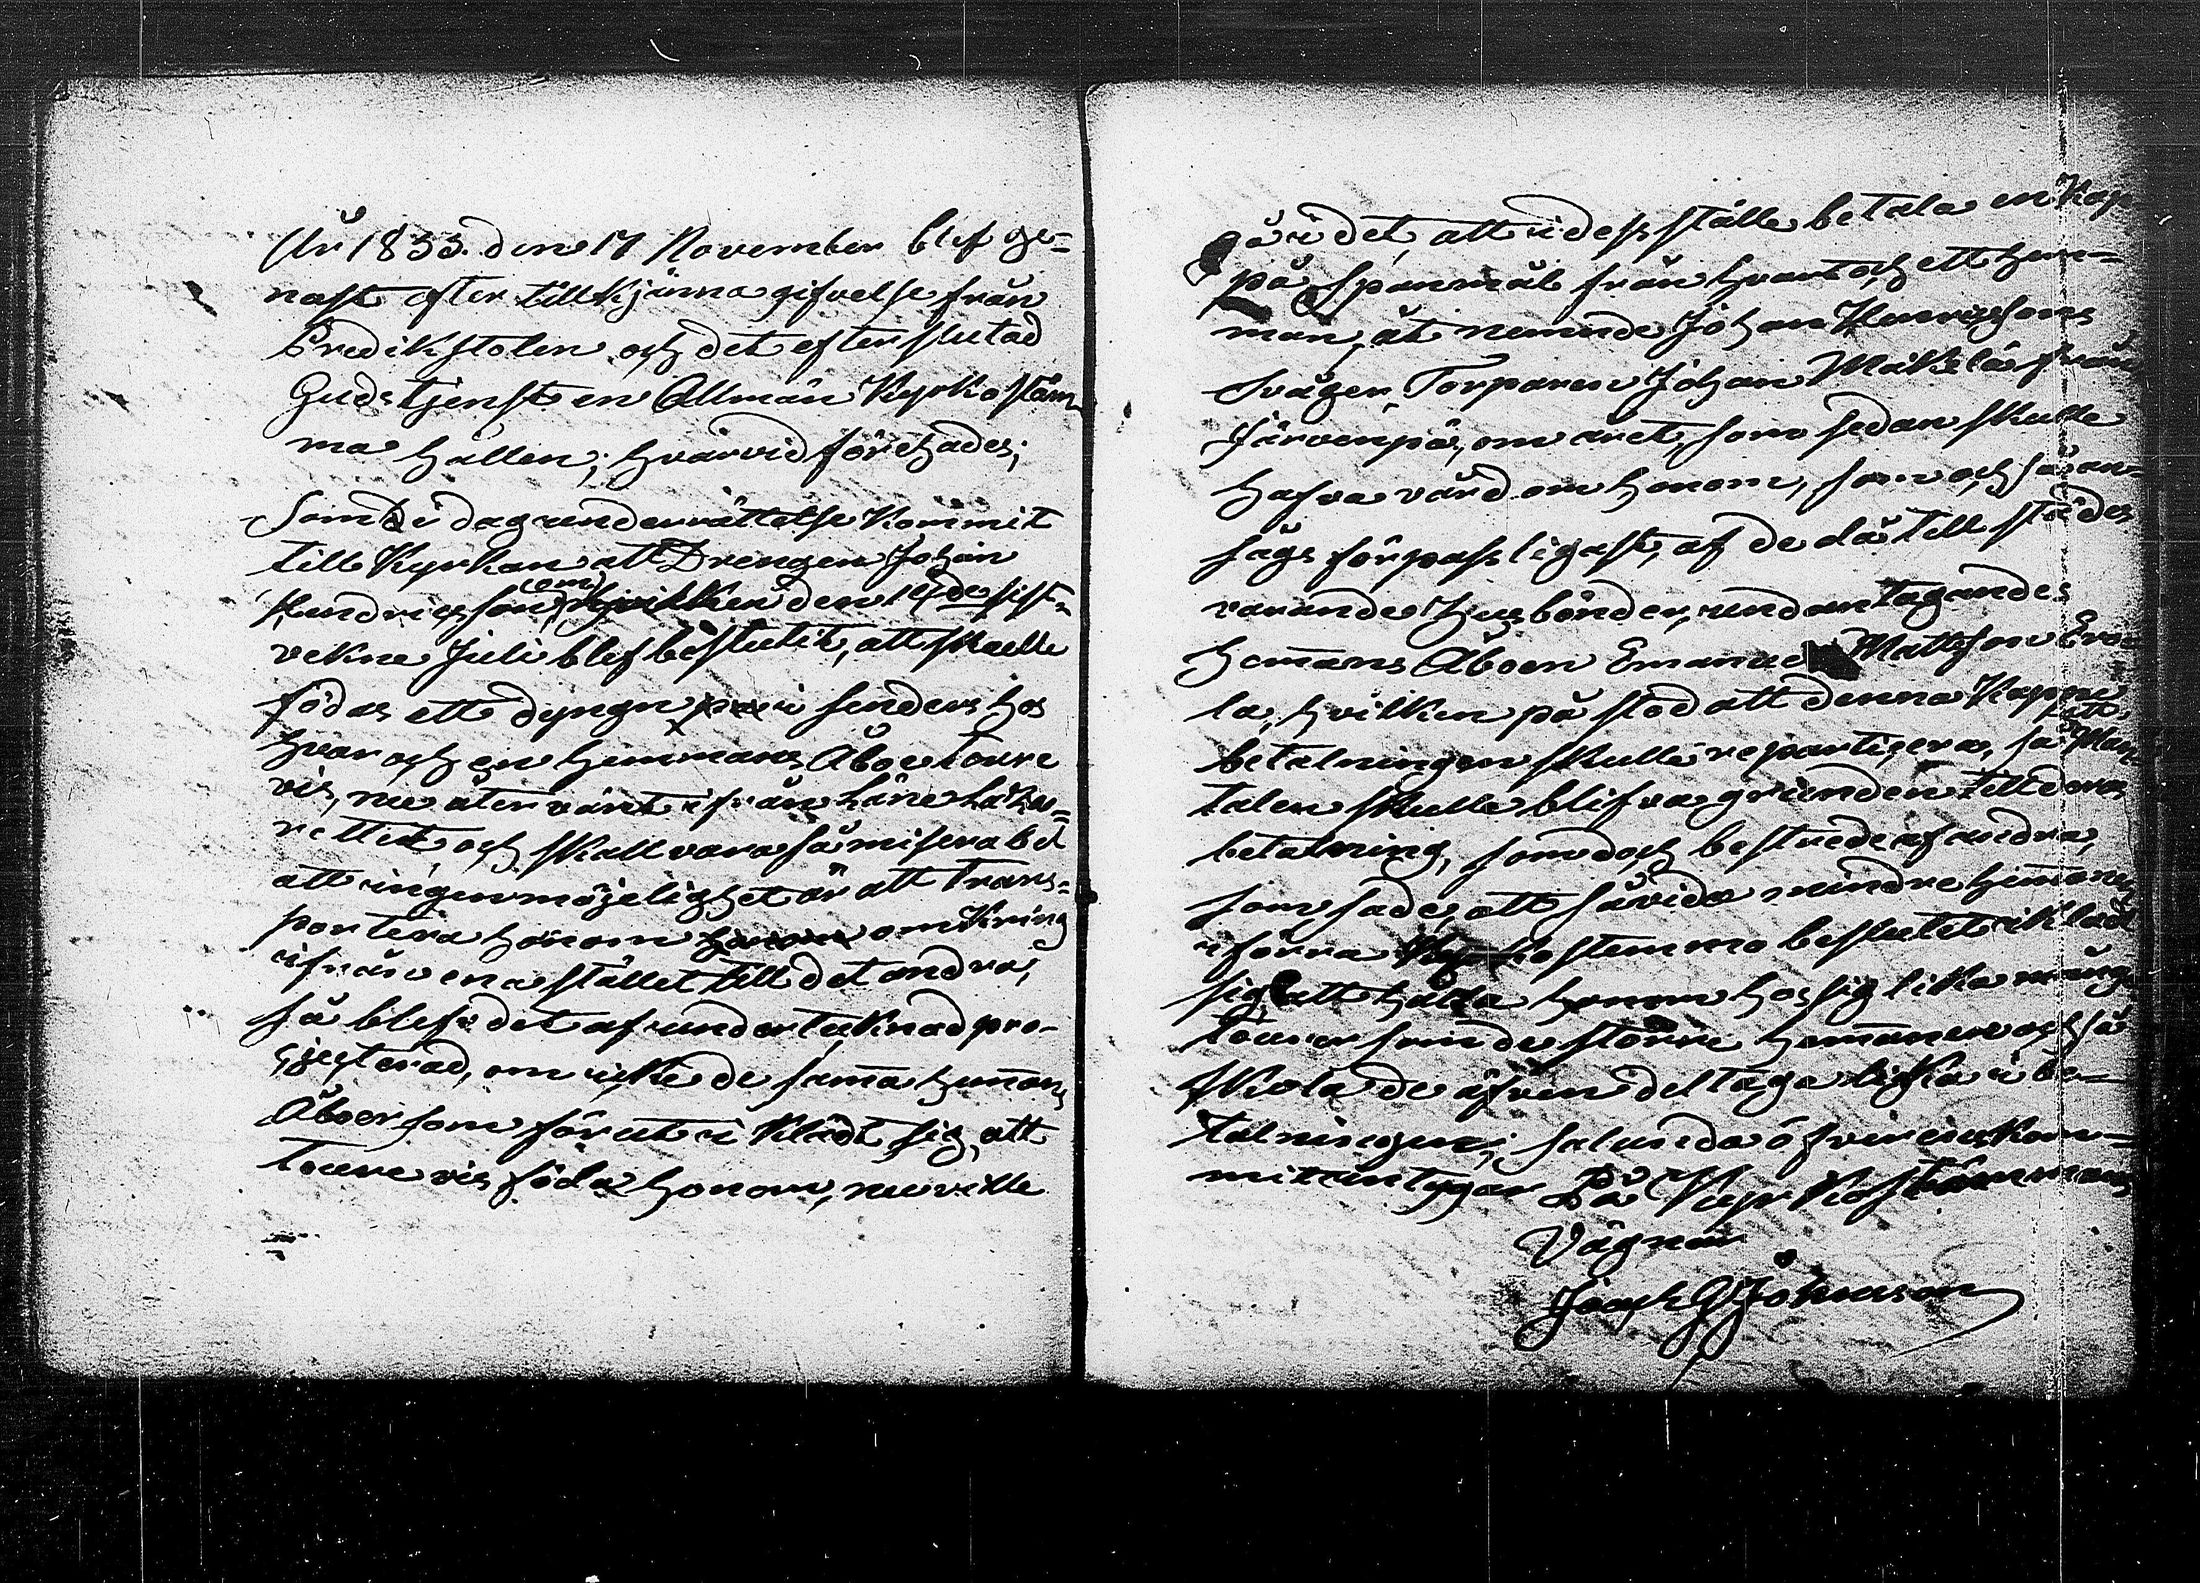 År 1833. den 17 November blef ge-
nast efter tillkjännagifvelse från
Predikstolen och det efter slutad
Gudstjenst en Allmän Kyrkostäm
ma hållen; hvarvid förehades;
Som i dag underrättelse kommit
till Kyrkan att Drengen Johan
Hendricsson, om hvilken den sist-
vekne Juli blef beslutit, att skulle
födas ett dyngn i senders hos
hvar och en hemmans Åboe tour
vis, nu återvänt ifrån
rettet, och skall vara så miserabel
att ingen möjelighet är att trans-
portera honom honom omkring
ifrån ena stället till det andra,
så blef det af undertecknad pro-
jecterad, om icke de samma hemmans
Åboer som förut i klädt sig, att
tourvis föda honom, nu ville
gå i det, att i dess ställe betala en Kap
pa spanmål från hvart och ett hem-
man, åt nemnde Johan Henricssons
Svåger, Torparen Johan Mäkelä från
Järvenpä, om året, som sedan skulle
hafva vård om honom, som och så an-
sågs för passligast, af de då till städes
varande Husbönder, undantagandes
hemans Åboen Emanuel Mattsson
la, hvilken på stod att denna Kappe
betalningen skulle reparticera, så att Man
talen skulle blifva grunden till deras
betalning, som doch bestreds af andra,
som sade, att såvida mindre hemanen
i förra Kyrkostemmo beslutet iklädt
sig, att hålla honom hos sig lika mång
tourer som de större hemanen och så
skola de äfven deltaga lika i be-
talningen; salunda öfverenskom-
mit intygar På Kyrkostämmans
Vägnar